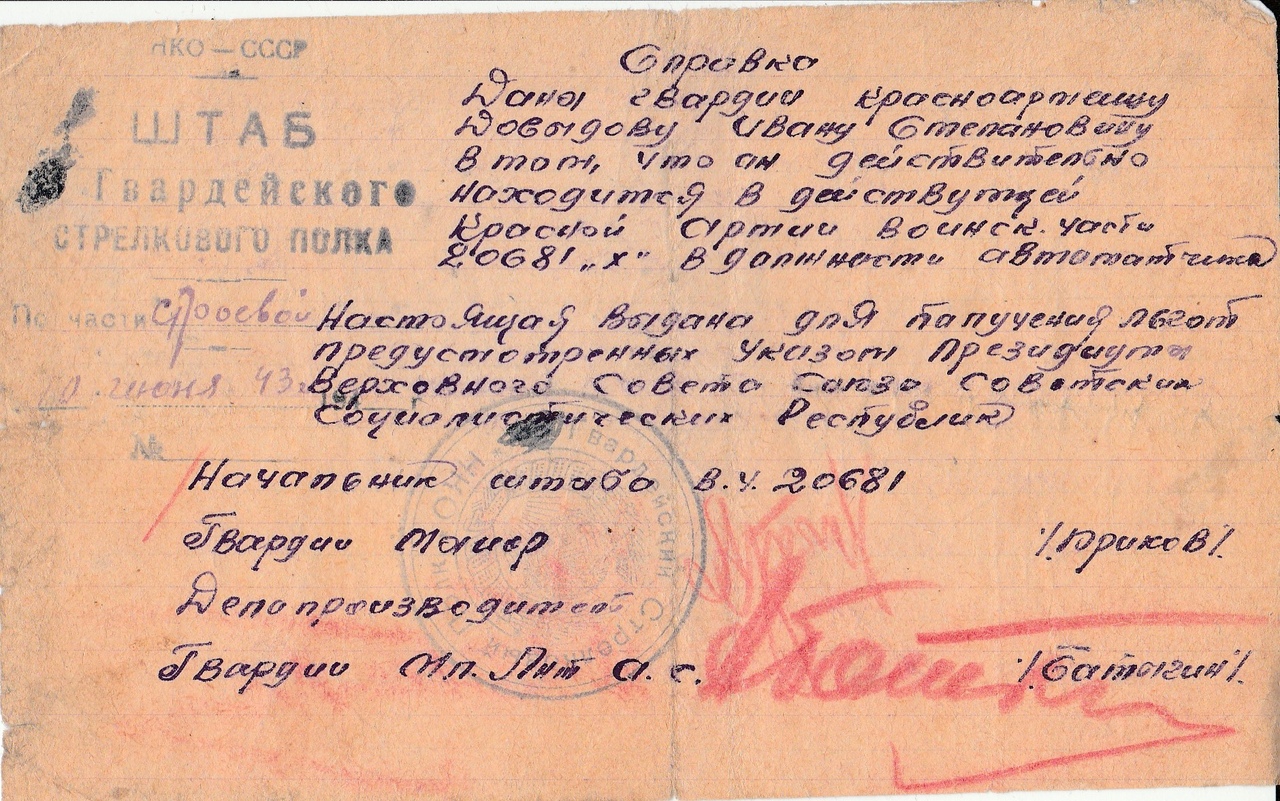 НКО — СССР
ШТАБ
Гвардейского
СТРЕЛКОВОГО ПОЛКА
По части строевой
10 июня 43
№
Справка
Дана гвардии красноармейцу
Довыдову Ивану Степановичу
в том, что он действительно
находится в действующей
Красной Армии воинск. части
20681 „х" в должности автоматчика
Настоящая выдана для получения льгот
предусмотренных Указом Президиума
Верховного Совета Союза Советских
Социалистических Республик
Начальник штаба в.ч. 20681
Гвардии Майор /Ариков/.
Делопроизводитель
Гвардии Мл. Лнт а.с. /Батягин/.
НКО Гвардейский Стрелковый Полк